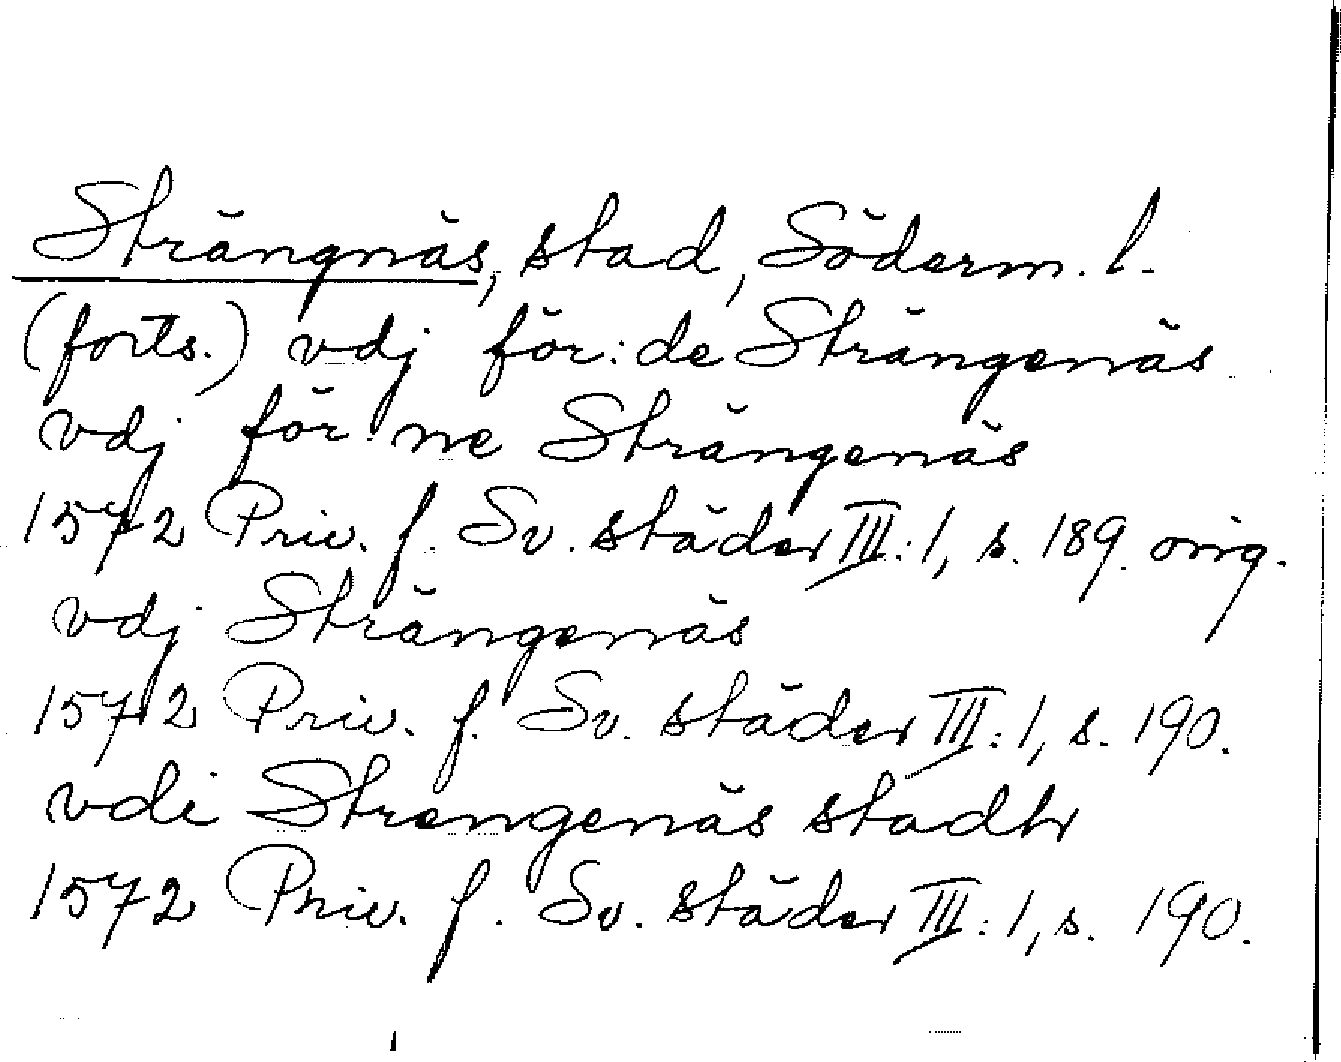 Strängnäs, stad, Söderm. l.
(forts.) vdj för: de Strängenäs
vdj för: ne Strängenäs
1572 Priv. f. Sv. städer III:1, s. 189. orig.
vdj Strängenäs
1572 Priv. f. Sv. städer III:1, s. 190.
vdi Strengenäs stadh
1572 Priv. f. Sv. städer III:1, s. 190.